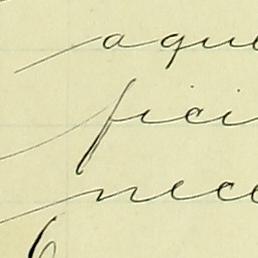 aque
fici
nece